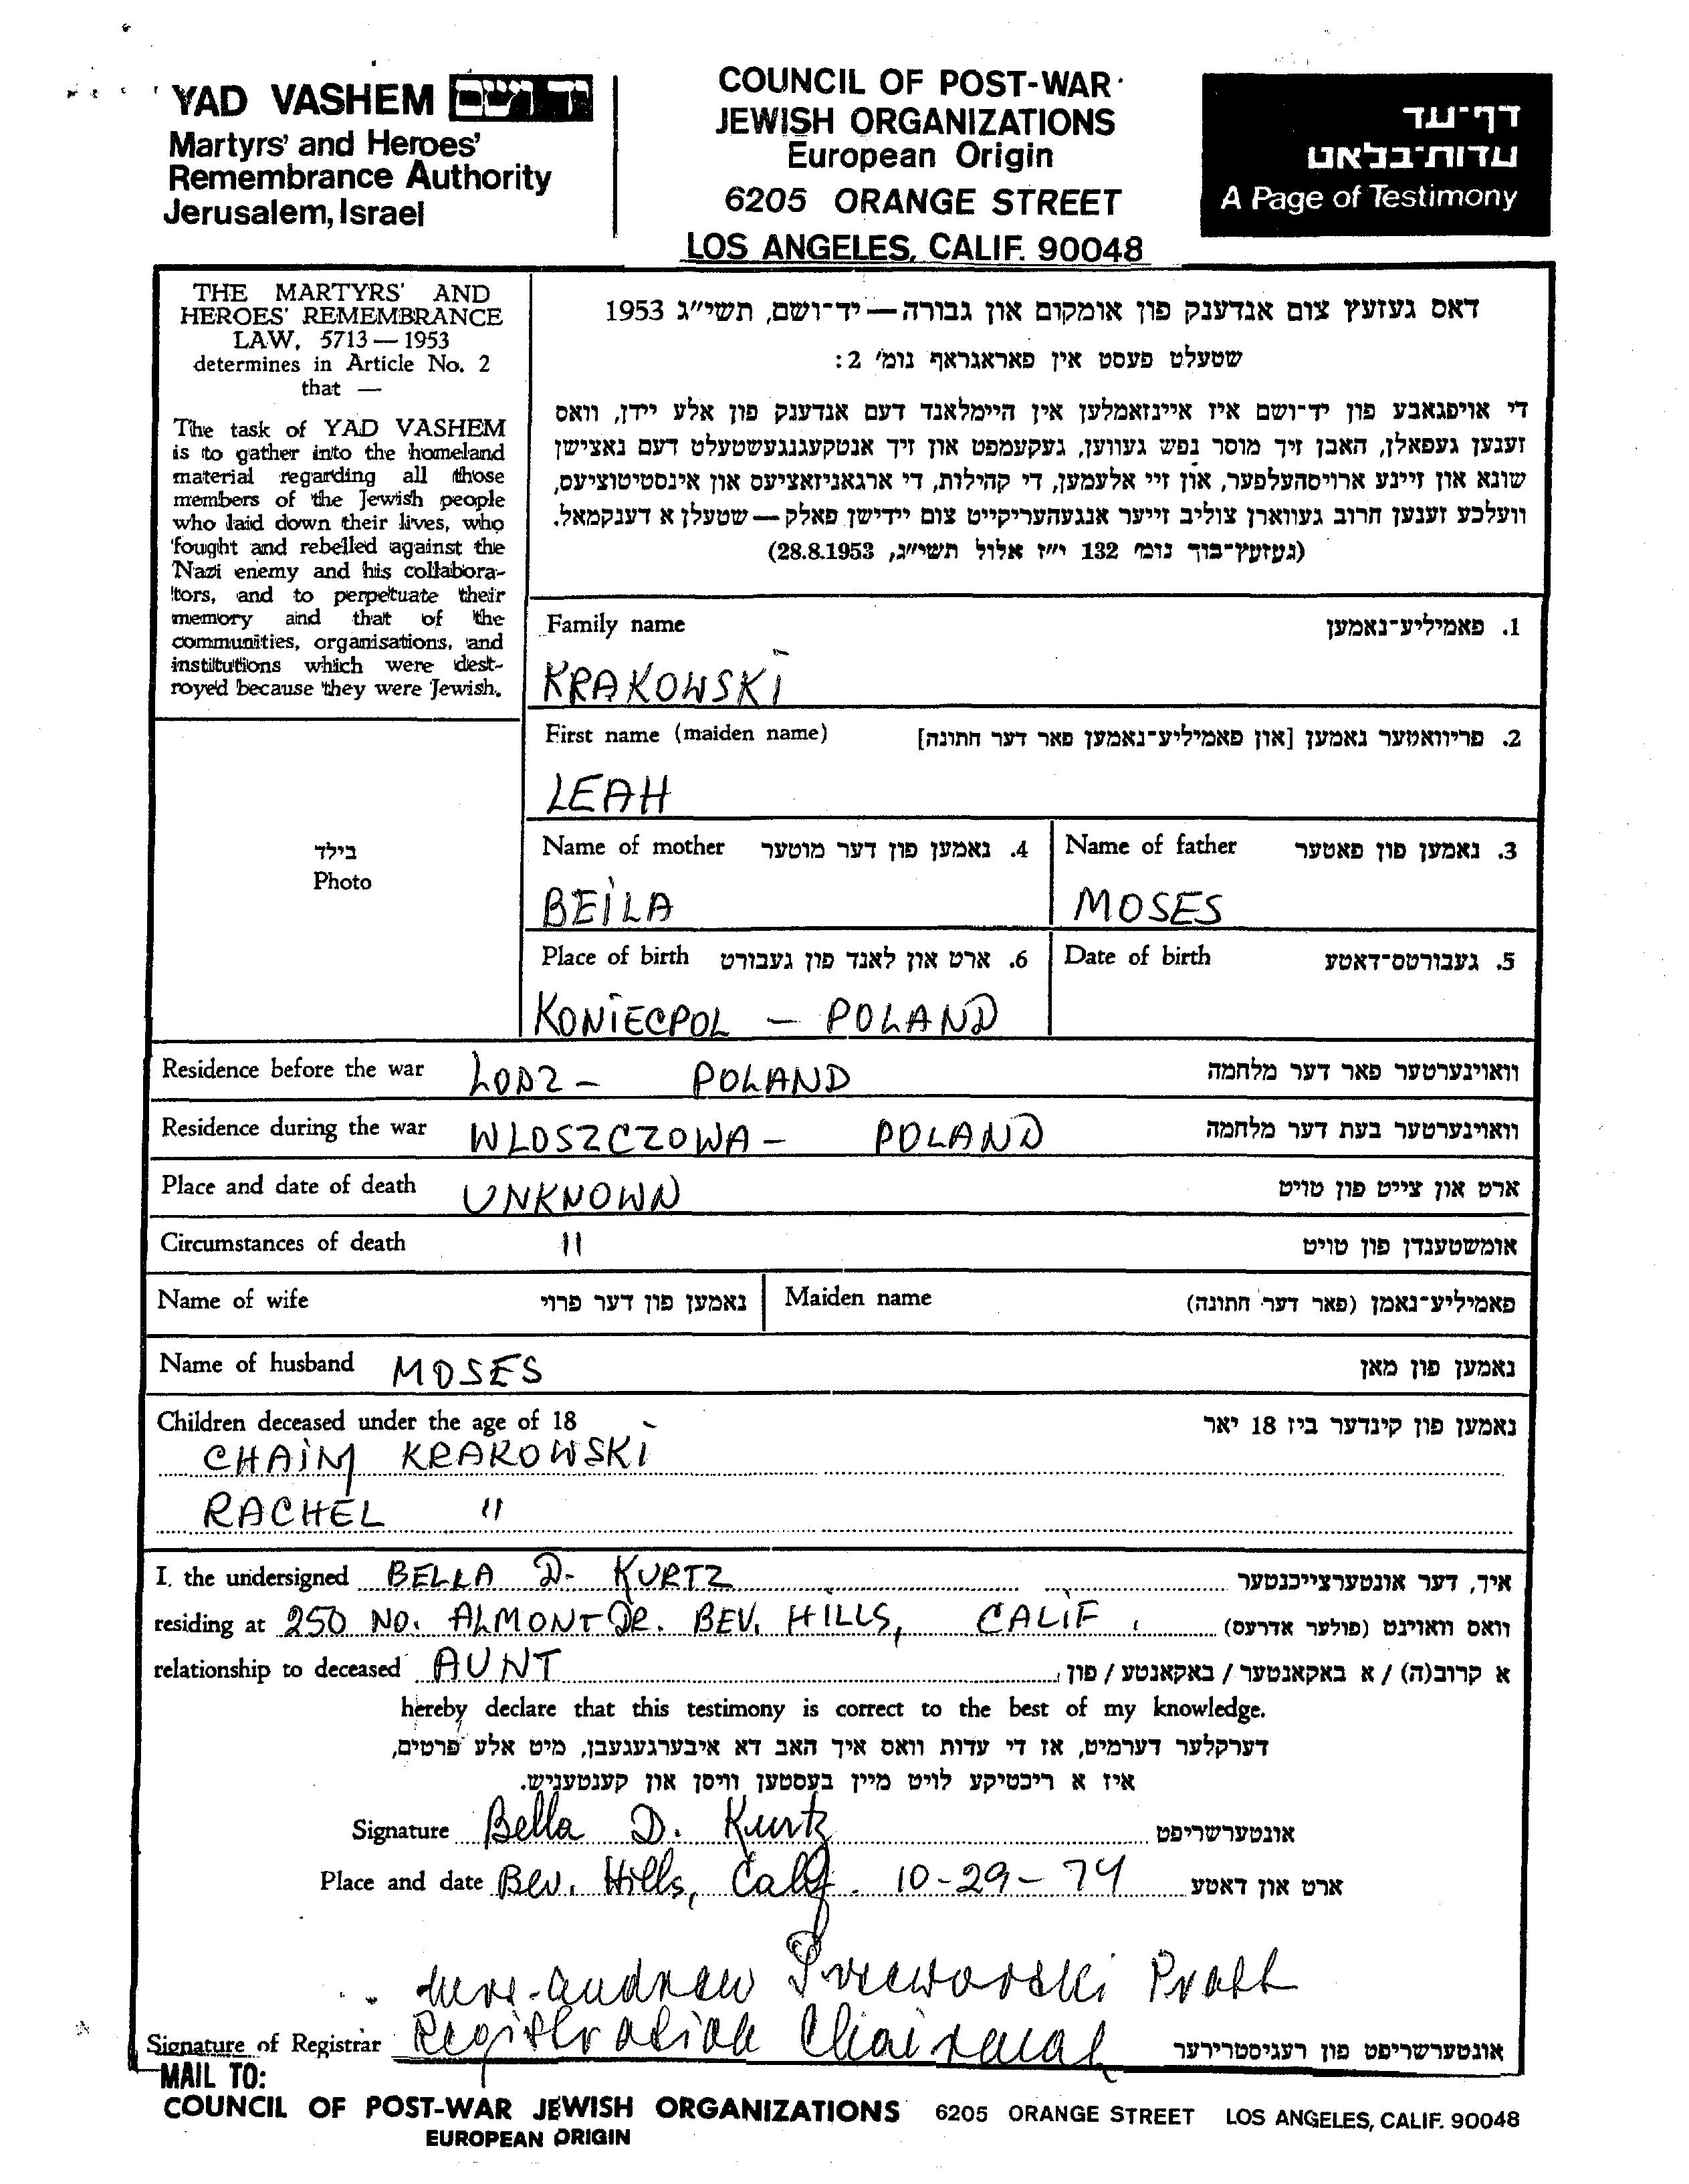 YAD VASHEM יד ושם
Martyrs' and Heroes'
Remembrance Authority
Jerusalem, Israel
COUNCIL OF POST-WAR
JEWISH ORGANIZATIONS
European Origin
6205 ORANGE STREET
LOS ANGELES, CALIF. 90048
דף־עד
עדות־בלאט
A Page of Testimony
THE MARTYRS' AND
HEROES' REMEMBRANCE
LAW, 5713 — 1953
determines in Article No. 2
that —
The task of YAD VASHEM
is to gather into the homeland
material regarding all those
members of the Jewish people
who laid down their lives, who
fought and rebelled against the
Nazi enemy and his collabora-
tors, and to perpetuate their
memory and that of the
communities, organisations, and
institutions which were dest-
royed because they were Jewish.
דאס געזעץ צום אנדענק פון אומקום און גבורה — יד־ושם, תשי״ג 1953
שטעלט פעסט אין פאראגראף נומ׳ 2:
די אויפגאבע פון יד־ושם איז איינזאמלען אין היימלאנד דעם אנדענק פון אלע יידן, וואס
זענען געפאלן, האבן זיך מוסר נפש געווען, געקעמפט און זיך אנטקעגנגעשטעלט דעם נאצישן
שונא און זיינע ארויסהעלפער, און זיי אלעמען, די קהילות, די ארגאניזאציעס און אינסטיטוציעס,
וועלכע זענען חרוב געווארן צוליב זייער אנגעהעריקייט צום יידישן פאלק — שטעלן א דענקמאל.
(געזעץ־בוך נומ׳ 132 י״ז אלול תשי״ג, 28.8.1953)
Family name 1. פאמיליע־נאמען
KRAKOWSKI
First name (maiden name) 2. פריוואטער נאמען [און פאמיליע־נאמען פאר דער חתונה]
LEAH
בילד
Photo
Name of mother 4. נאמען פון דער מוטער Name of father 3. נאמען פון פאטער
BEILA MOSES
Place of birth 6. ארט און לאנד פון געבורט Date of birth 5. געבורטס־דאטע
KONIECPOL – POLAND
Residence before the war LODZ – POLAND וואוינערטער פאר דער מלחמה
Residence during the war WLOSZCZOWA – POLAND וואוינערטער בעת דער מלחמה
Place and date of death UNKNOWN ארט און צייט פון טויט
Circumstances of death " אומשטענדן פון טויט
Name of wife נאמען פון דער פרוי Maiden name פאמיליע־נאמן (פאר דער חתונה)
Name of husband MOSES נאמען פון מאן
Children deceased under the age of 18 נאמען פון קינדער ביז 18 יאר
CHAIM KRAKOWSKI
RACHEL "
I, the undersigned BELLA D. KURTZ איך, דער אונטערצייכנטער
residing at 250 NO. ALMONT DR. BEV. HILLS, CALIF. וואס וואוינט (פולער אדרעס)
relationship to deceased AUNT א קרוב(ה) / א באקאנטער / באקאנטע / פון
hereby declare that this testimony is correct to the best of my knowledge.
דערקלער דערמיט, אז די עדות וואס איך האב דא איבערגעגעבן, מיט אלע פרטים,
איז א ריכטיקע לויט מיין בעסטען וויסן און קענטעניש.
Signature Bella D. Kurtz אונטערשריפט
Place and date Bev. Hills, Calif. 10-29-74 ארט און דאטע
Andrew Pratt
Signature of Registrar Registration Chairman אונטערשריפט פון רעגיסטרירער
MAIL TO:
COUNCIL OF POST-WAR JEWISH ORGANIZATIONS 6205 ORANGE STREET LOS ANGELES, CALIF. 90048
EUROPEAN ORIGIN